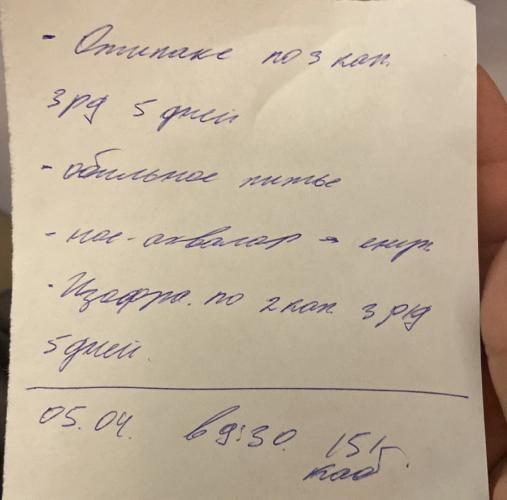 - Отипакс по 3 кап.
3 р/д 5 дней
- обильное питье
- нос - аквалор →
- Изофра. по 2 кап. 3 р/д
5 дней.
05.04. в 9:30. 151 каб.